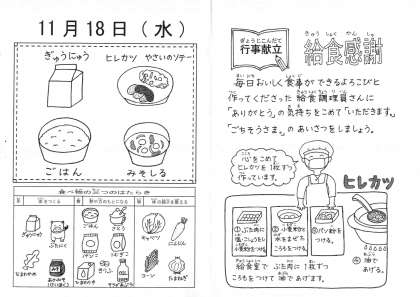 11月18日（水）
ぎゅうにゅう
ヒレカツ
やさいのソテー
ごはん
みそしる
食べ物の三つのはたらき
ぎゅうにゅう
ぶたにく
ごはん
さとう
パンこ
こむぎこ
あぶら
キャベツ
にんじん
コーン
たまねぎ
ぎょうじこんだて
行事献立
きゅうしょくかんしゃ
給食感謝
毎日おいしく食事ができるよろこびと
作ってくださった給食調理員さんに
「ありがとう」の気持ちをこめて「いただきます。」
「ごちそうさま。」のあいさつをしましょう。
心をこめて
ヒレカツを1枚ずつ
作っています。
ヒレカツ
①ぶた肉に
塩・こしょうをし
小麦粉をつける。
②小麦粉と
水をまぜた
ころもを
つける。
③パン粉を
つける。
④油で
あげる。
給食室で ぶた肉に 1枚ずつ
ころもをつけて 油で あげます。